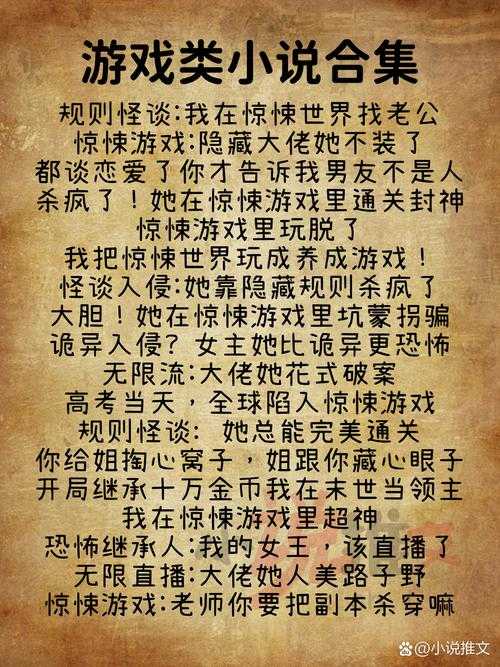 游戏类小说合集
规则怪谈:我在惊悚世界找老公
惊悚游戏:隐藏大佬她不装了
都谈恋爱了你才告诉我男友不是人
杀疯了！她在惊悚游戏里通关封神
惊悚游戏里玩脱了
我把惊悚世界玩成养成游戏！
怪谈入侵:她靠隐藏规则杀疯了
大胆！她在惊悚游戏里坑蒙拐骗
诡异入侵？女主她比诡异更恐怖
无限流:大佬她花式破案
高考当天，全球陷入惊悚游戏
规则怪谈: 她总能完美通关
你给姐掏心窝子，姐跟你藏心眼子
开局继承十万金币我在末世当领主
我在惊悚游戏里超神
恐怖继承人:我的女王，该直播了
无限直播:大佬她人美路子野
惊悚游戏:老师你要把副本杀穿嘛
@小说推文